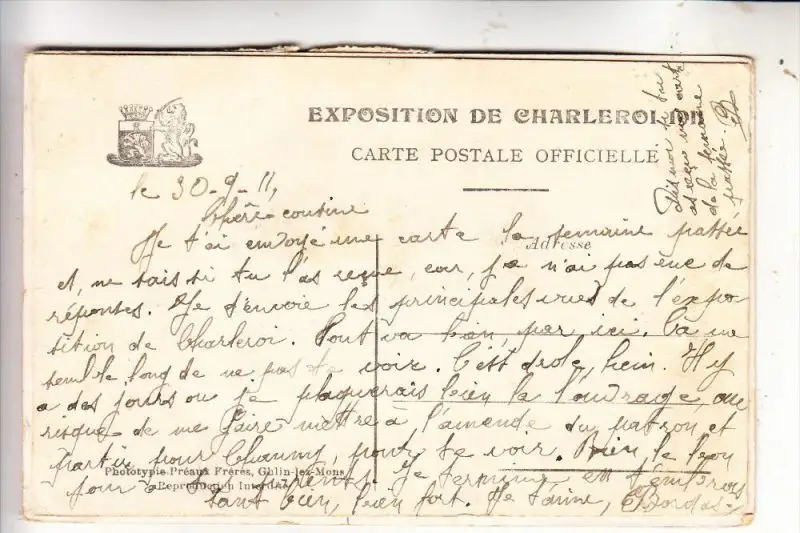 EXPOSITION DE CHARLEROI
CARTE POSTALE OFFICIELLE
Dis moi si tu
as reçu ma carte
de la semaine
passée.
le 30-9-11,
Chère cousine
Je t'ai envoyé une carte la semaine passée
Adresse
et, ne sais si tu l'as reçue, car, je n'ai pas eue de
réponses. Je t'envoie les principales vues de l'expo-
sition de Charleroi. Tout va bien, par ici. Ça me
semble long de ne pas te voir. C'est drole, hein. Il y
a des jours ou je plaquerais bien la l'ouvrage, au
risque de me faire mettre à l'amende du patron et
partir pour Chauny, pour te voir. Bien, le bon
Phototypie Préaux Frères, Ghlin-lez-Mons
Reproduction Interdite
jour à parents. Je termine en t'embrass
tant bien, bien fort. Je t'aime,